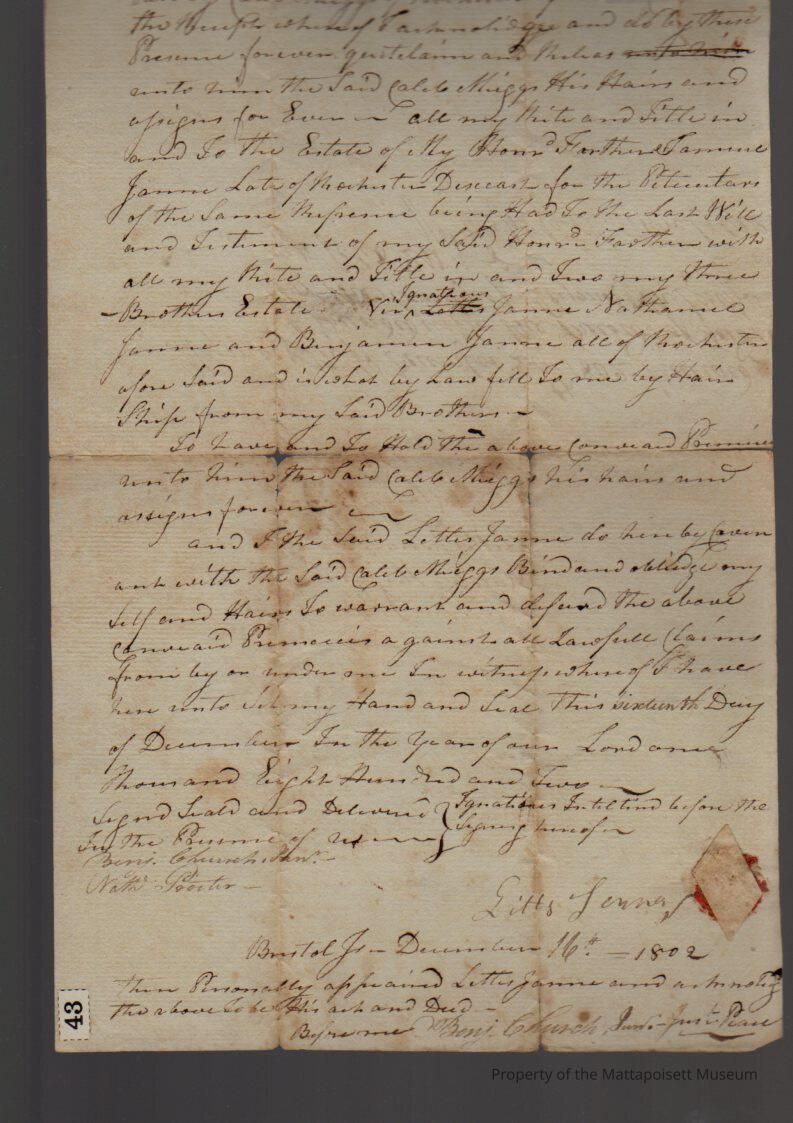 the Receipt where of I acknolidge and do by these
Presence forever quitclaim and Releas unto him
unto him the Said Caleb Meiggs His Hairs and
assigns for Ever all my Rite and Title in
and To the Estate of My Honrd Farther Samuel
Janne Late of Rochester Deceast for the Peticulars
of the Same Refrence being Had To the Last Will
and Testiment of my Said Honrd Farther with
all my Rite and Title in and Two my three
Brothers Estate Viz Ignatious Letts Janne Nathaniel
Janne and Benjamin Janne all of Rochester
afore Said and is what by Law fell To me by Hair
Ship from my Said Brothers
To have and To Hold the above Conveaid Premices
unto him the Said Caleb Meiggs his hairs and
assigns forever
and I the Said Letts Janne do here by Coven
ant with the Said Caleb Meiggs Bind and oblidge my
Self and Hairs To warrant and defend the above
Conveaid Premecies against all Lawfull Claims
from by or under me In witness where of I have
here unto Set my Hand and Seal This sixteenth Day
of December In the Year of our Lord one
thousand Eight Hundred and Two
Signd Seald and Delivered
In the Presence of
Ignatious Intilind before the
Signing hereof
Benj. Church Junr.
Nathl Procter
Letts Jenne
Bristol Js December 16th 1802
then Personally appeaired Letts Janne and acknolidg
the above to be His act and Deed
Before me Benj. Church Junr Just Peace
43
Property of the Mattapoisett Museum